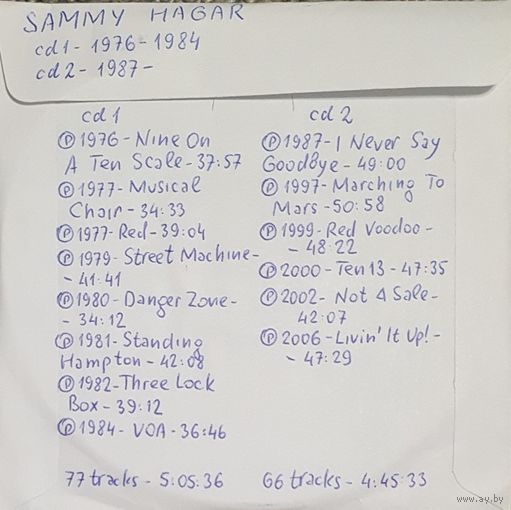 SAMMY HAGAR
cd1 - 1976 - 1984
cd2 - 1987 -
cd1
Ⓟ 1976 - Nine On
A Ten Scale - 37:57
Ⓟ 1977 - Musical
Chair - 34:33
Ⓟ 1977 - Red - 39:04
Ⓟ 1979 - Street Machine -
- 41:41
Ⓟ 1980 - Danger Zone -
- 34:12
Ⓟ 1981 - Standing
Hampton - 42:08
Ⓟ 1982 - Three Lock
Box - 39:12
Ⓟ 1984 - VOA - 36:46
77 tracks - 5:05:36
cd2
Ⓟ 1987 - I Never Say
Goodbye - 49:00
Ⓟ 1997 - Marching To
Mars - 50:58
Ⓟ 1999 - Red Voodoo -
- 48:22
Ⓟ 2000 - Ten 13 - 47:35
Ⓟ 2002 - Not 4 Sale -
42:07
Ⓟ 2006 - Livin' It Up! -
- 47:29
66 tracks - 4:45:33
www.ay.by